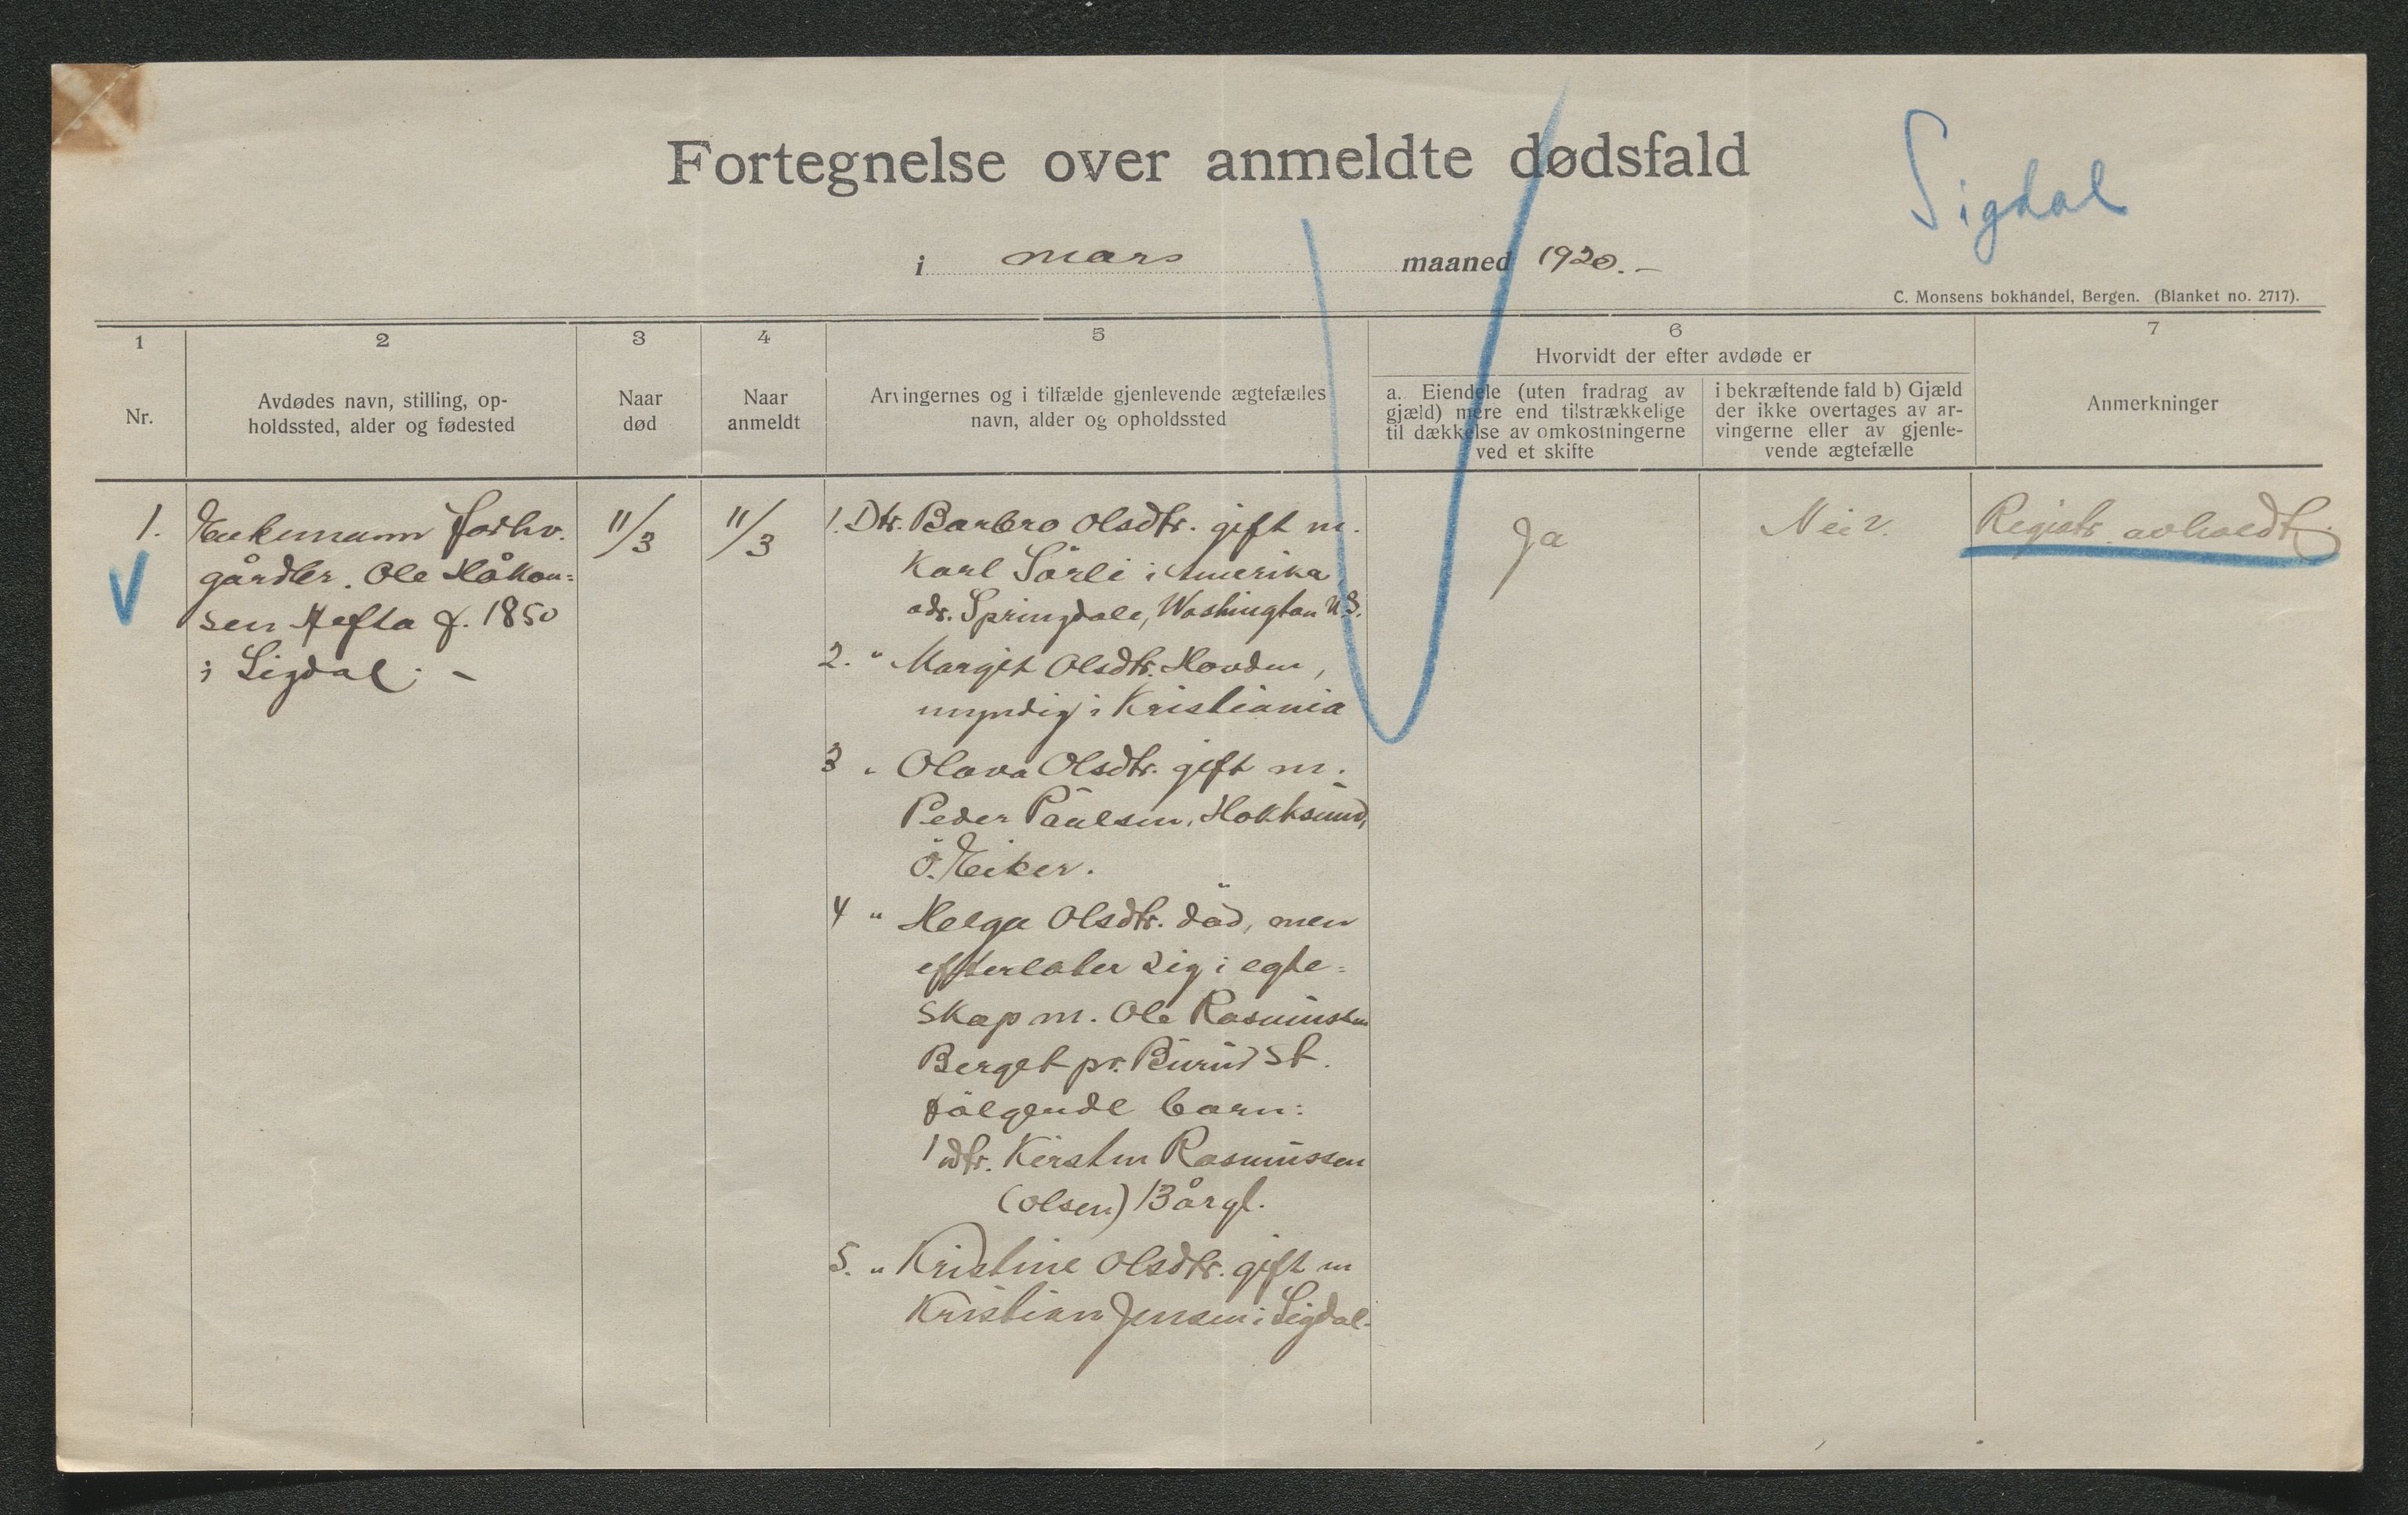 Fortegnelse over anmeldte dødsfald
Sigdal
i mars maaned 1920.-
C. Monsens bokhandel, Bergen. (Blanket no. 2717).
1
Nr.
2
Avdødes navn, stilling, op-
holdssted, alder og fødested
3
Naar
død
4
Naar
anmeldt
5
Arvingernes og i tilfælde gjenlevende ægtefælles
navn, alder og opholdssted
6
Hvorvidt der efter avdøde er
a. Eiendele (uten fradrag av
gjæld) mere end tilstrækkelige
til dækkelse av omkostningerne
ved et skifte
i bekræftende fald b) Gjæld
der ikke overtages av ar-
vingerne eller av gjenle-
vende ægtefælle
7
Anmerkninger
1.
Enkemann forhv.
gårdbr. Ole Håkon=
sen Hefta f. 1850
i Sigdal. -
11/3
11/3
1. Dtr. Barbro Olsdtr. gift m.
Karl Sörli i Amerika
adr. Springdale, Washington U.S.
2. " Margit Olsdtr. Hovden,
myndig i Kristiania
3 " Olava Olsdtr. gift m.
Peder Paulsen, Hokksund,
Ö. Eiker.
4 " Helga Olsdtr. död, men
efterlater sig i egte=
skap m. Ole Rasmussen
Berget pr. Burud st.
fölgende barn:
1 dtr. Kirsten Rasmussen
(Olsen) 13 år gl.
5. " Kristine Olsdtr. gift m
Kristian Jensen i Sigdal.
Ja
Nei.
Registr. avholdt.